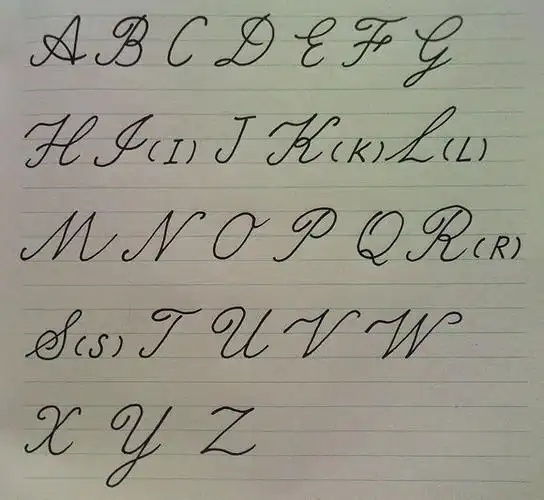 A B C D E F G
H I (I) J K (K) L (L)
M N O P Q R (R)
S (S) T U V W
X Y Z